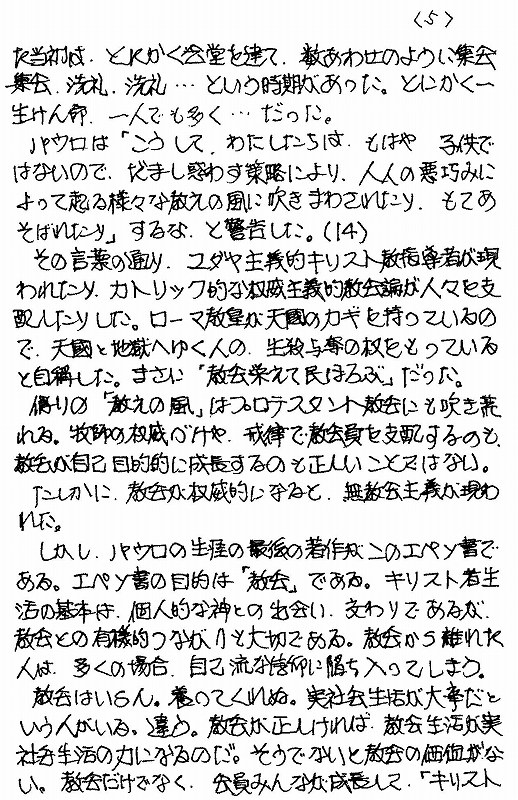 〈5〉
た当初は、とにかく会堂を建て、数あわせのように集会
集会、洗礼、洗礼…という時期があった。とにかく一
生けん命、一人でも多く…だった。
パウロは「こうして、わたしたちは、もはや 子供で
はないので、だまし惑わす策略により、人人の悪巧みに
よって起る様々な教えの風に吹きまわされたり、もてあ
そばれたり」するな、と警告した。(14)
その言葉の通り、ユダヤ主義的キリスト教指導者が現
われたり、カトリック的な权威主義的教会論が人々を支
配したりした。ローマ教皇が天國のカギを持っているの
で、天國と地獄へゆく人の、生殺与奪の权をもっている
と自稱した。まさに「教会栄えて民ほろぶ」だった。
偽りの「教えの風」はプロテスタント教会にも吹き荒
れる。牧師の权威づけや、戒律で教会員を支配するのも、
教会が自己目的的に成長するのも正しいことではない。
たしかに、教会が权威的になると、無教会主義が現わ
れた。
しかし、パウロの生涯の最後の著作がこのエペソ書で
ある。エペソ書の目的は「教会」である。キリスト者生
活の基本は、個人的な神との出会い、交わりであるが、
教会との有機的つながりも大切である。教会から離れた
人は、多くの場合、自己流な信仰に陥ち入ってしまう。
教会はいらん。養ってくれぬ。実社会生活が大事だと
いう人がいる。違う。教会が正しければ、教会生活が実
社会生活の力になるのだ。そうでないと教会の価值がな
い。教会だけでなく、会員みんなが成長して、「キリスト